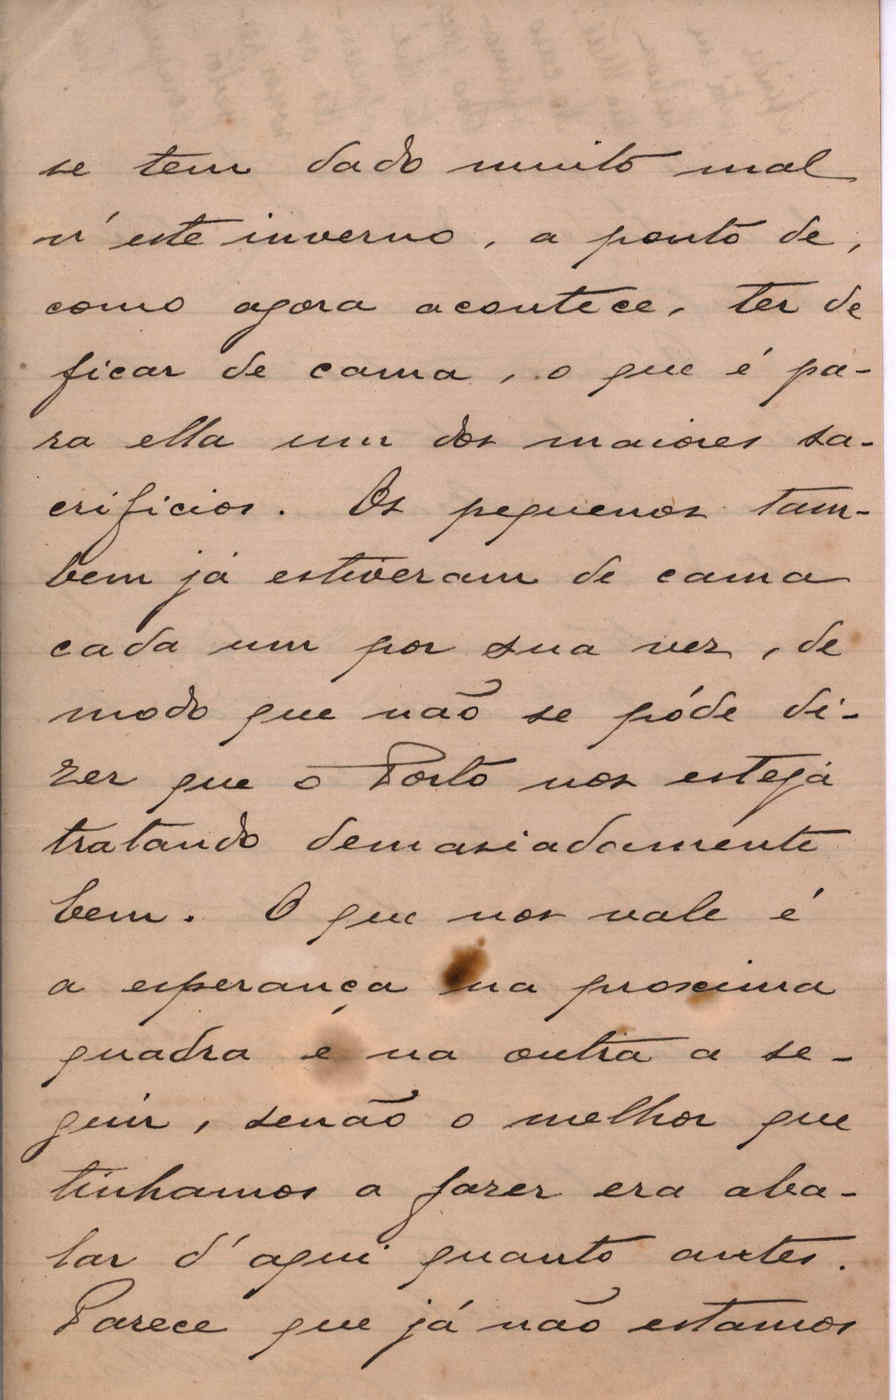 se tem dado muito mal
n'este inverno, a ponto de,
como agora acontece, ter de
ficar de cama, o que é pa-
ra ella um dos maiores sa-
crificios. Os pequenos tam-
bem já estiveram de cama
cada um por sua vez, de
modo que não se póde di-
zer que o Porto nos esteja
tratando demasiadamente
bem. O que nos vale é
a esperança na proxima
quadra e na outra a se-
guir, senão o melhor que
tinhamos a fazer era aba-
lar d'aqui quanto antes.
Parece que já não estamos